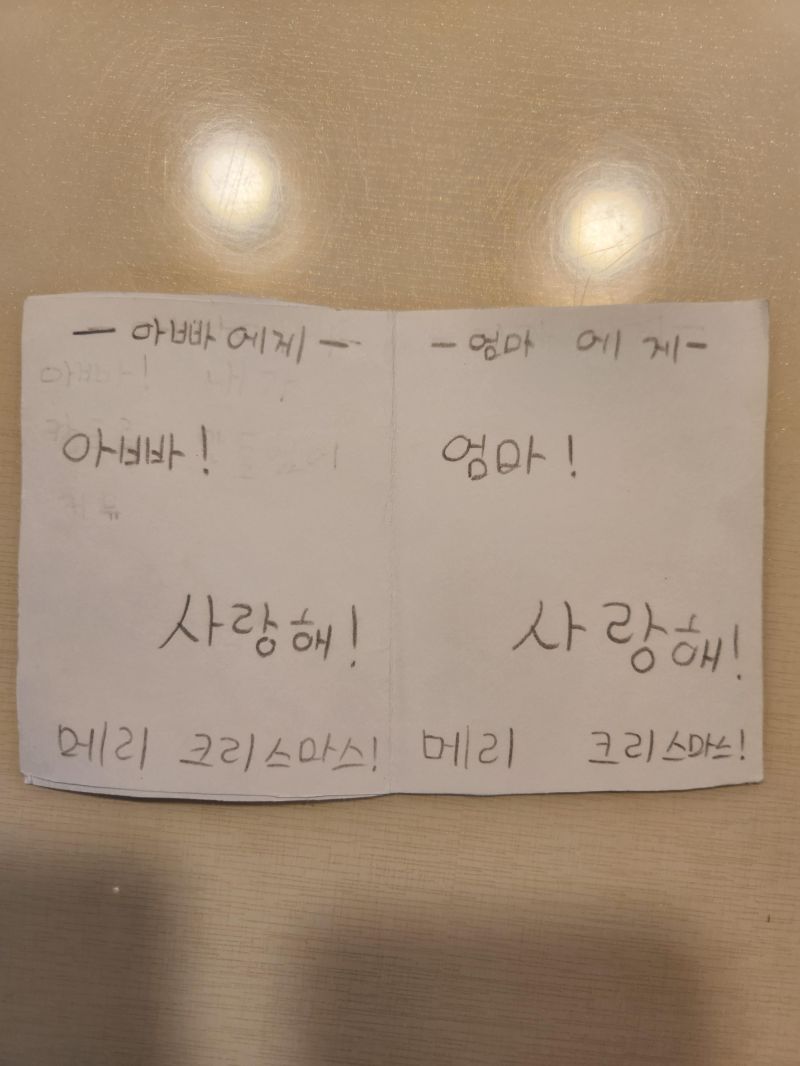 - 아빠에게 -
아빠!
사랑해!
메리 크리스마스!
- 엄마 에 게 -
엄마!
사랑해!
메리 크리스마스!